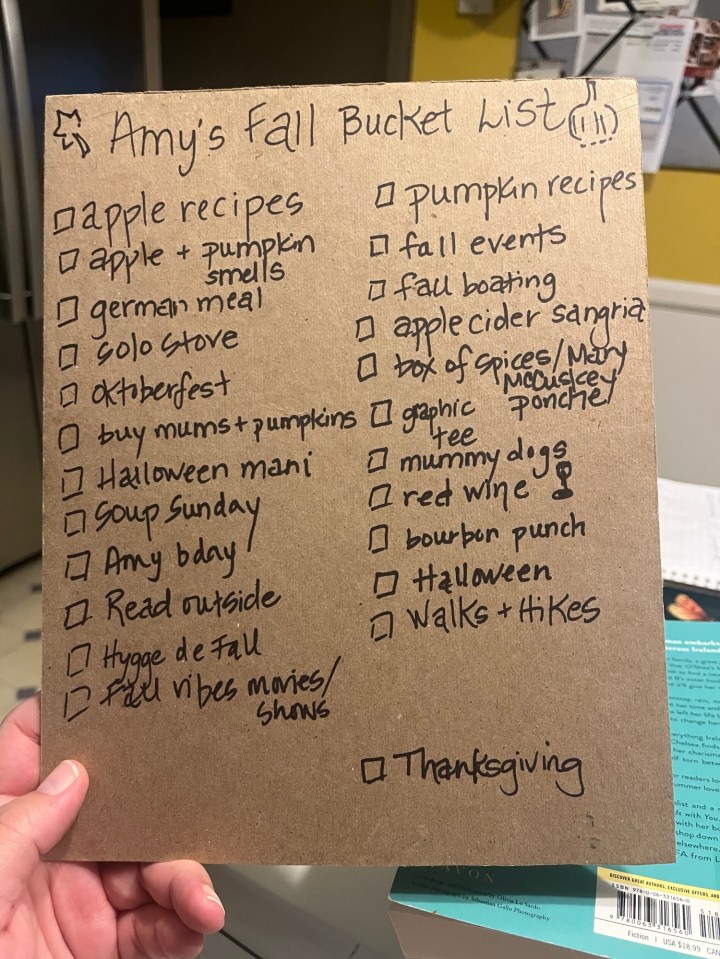 Amy's Fall Bucket List
apple recipes
apple + pumpkin
smells
german meal
solo stove
oktoberfest
buy mums + pumpkins
Halloween mani
Soup Sunday
Amy bday
Read outside
Hygge de Fall
Fall vibes movies/
shows
pumpkin recipes
fall events
fall boating
apple cider sangria
box of spices/Mary
McCuskey
ponche
graphic
tee
mummy dogs
red wine
bourbon punch
Halloween
Walks + Hikes
Thanksgiving
DISCOVER GREAT AUTHORS, EXCLUSIVE OFFERS, AND
Fiction | USA $18.99